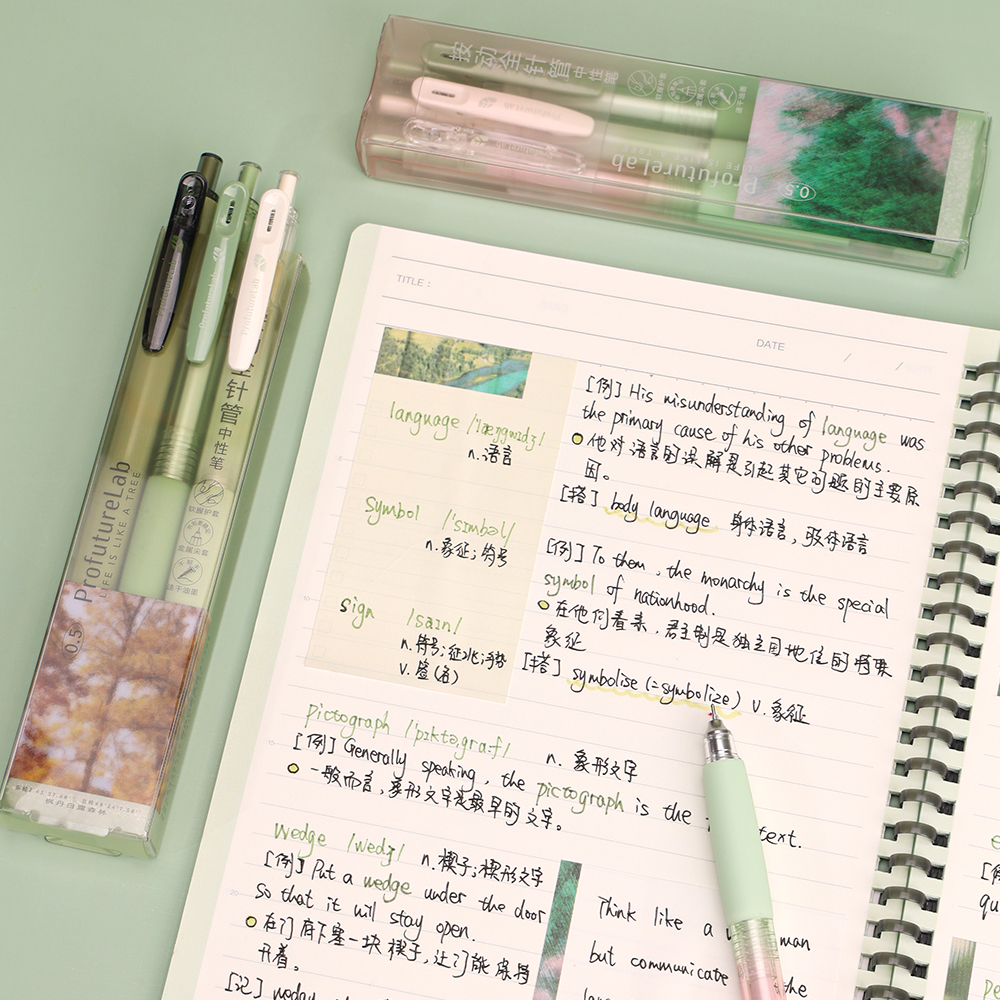 按动全针管中性笔
ProfutureLab
0.5
ProfutureLab
ProfutureLab
针管中性笔
ProfutureLab
LIFE IS LIKE A TREE
软胶护套
金属尖套
速干油墨
0.5
枫丹白露森林
TITLE :
DATE / /
language
n. 语言
symbol /'sɪmbəl/
n. 象征; 符号
sign /saɪn/
n. 符号; 征兆; 手势
v. 签(名)
[例] His misunderstanding of language was
the primary cause of his other problems.
他对语言的误解是引起其它问题的主要原
因。
[搭] body language 身体语言, 肢体语言
[例] To them, the monarchy is the special
symbol of nationhood.
在他们看来, 君主制是独立国地位的特殊
象征
[搭] symbolise (=symbolize) v. 象征
pictograph /'pɪktəˌgrɑːf/ n. 象形文字
[例] Generally speaking, the pictograph is the text.
一般而言, 象形文字是最早的文字。
wedge /wedʒ/ n. 楔子; 楔形文字
[例] Put a wedge under the door
so that it will stay open.
在门底下塞一块楔子, 让门能保持
开着。
[记]
Think like a man
but communicate the